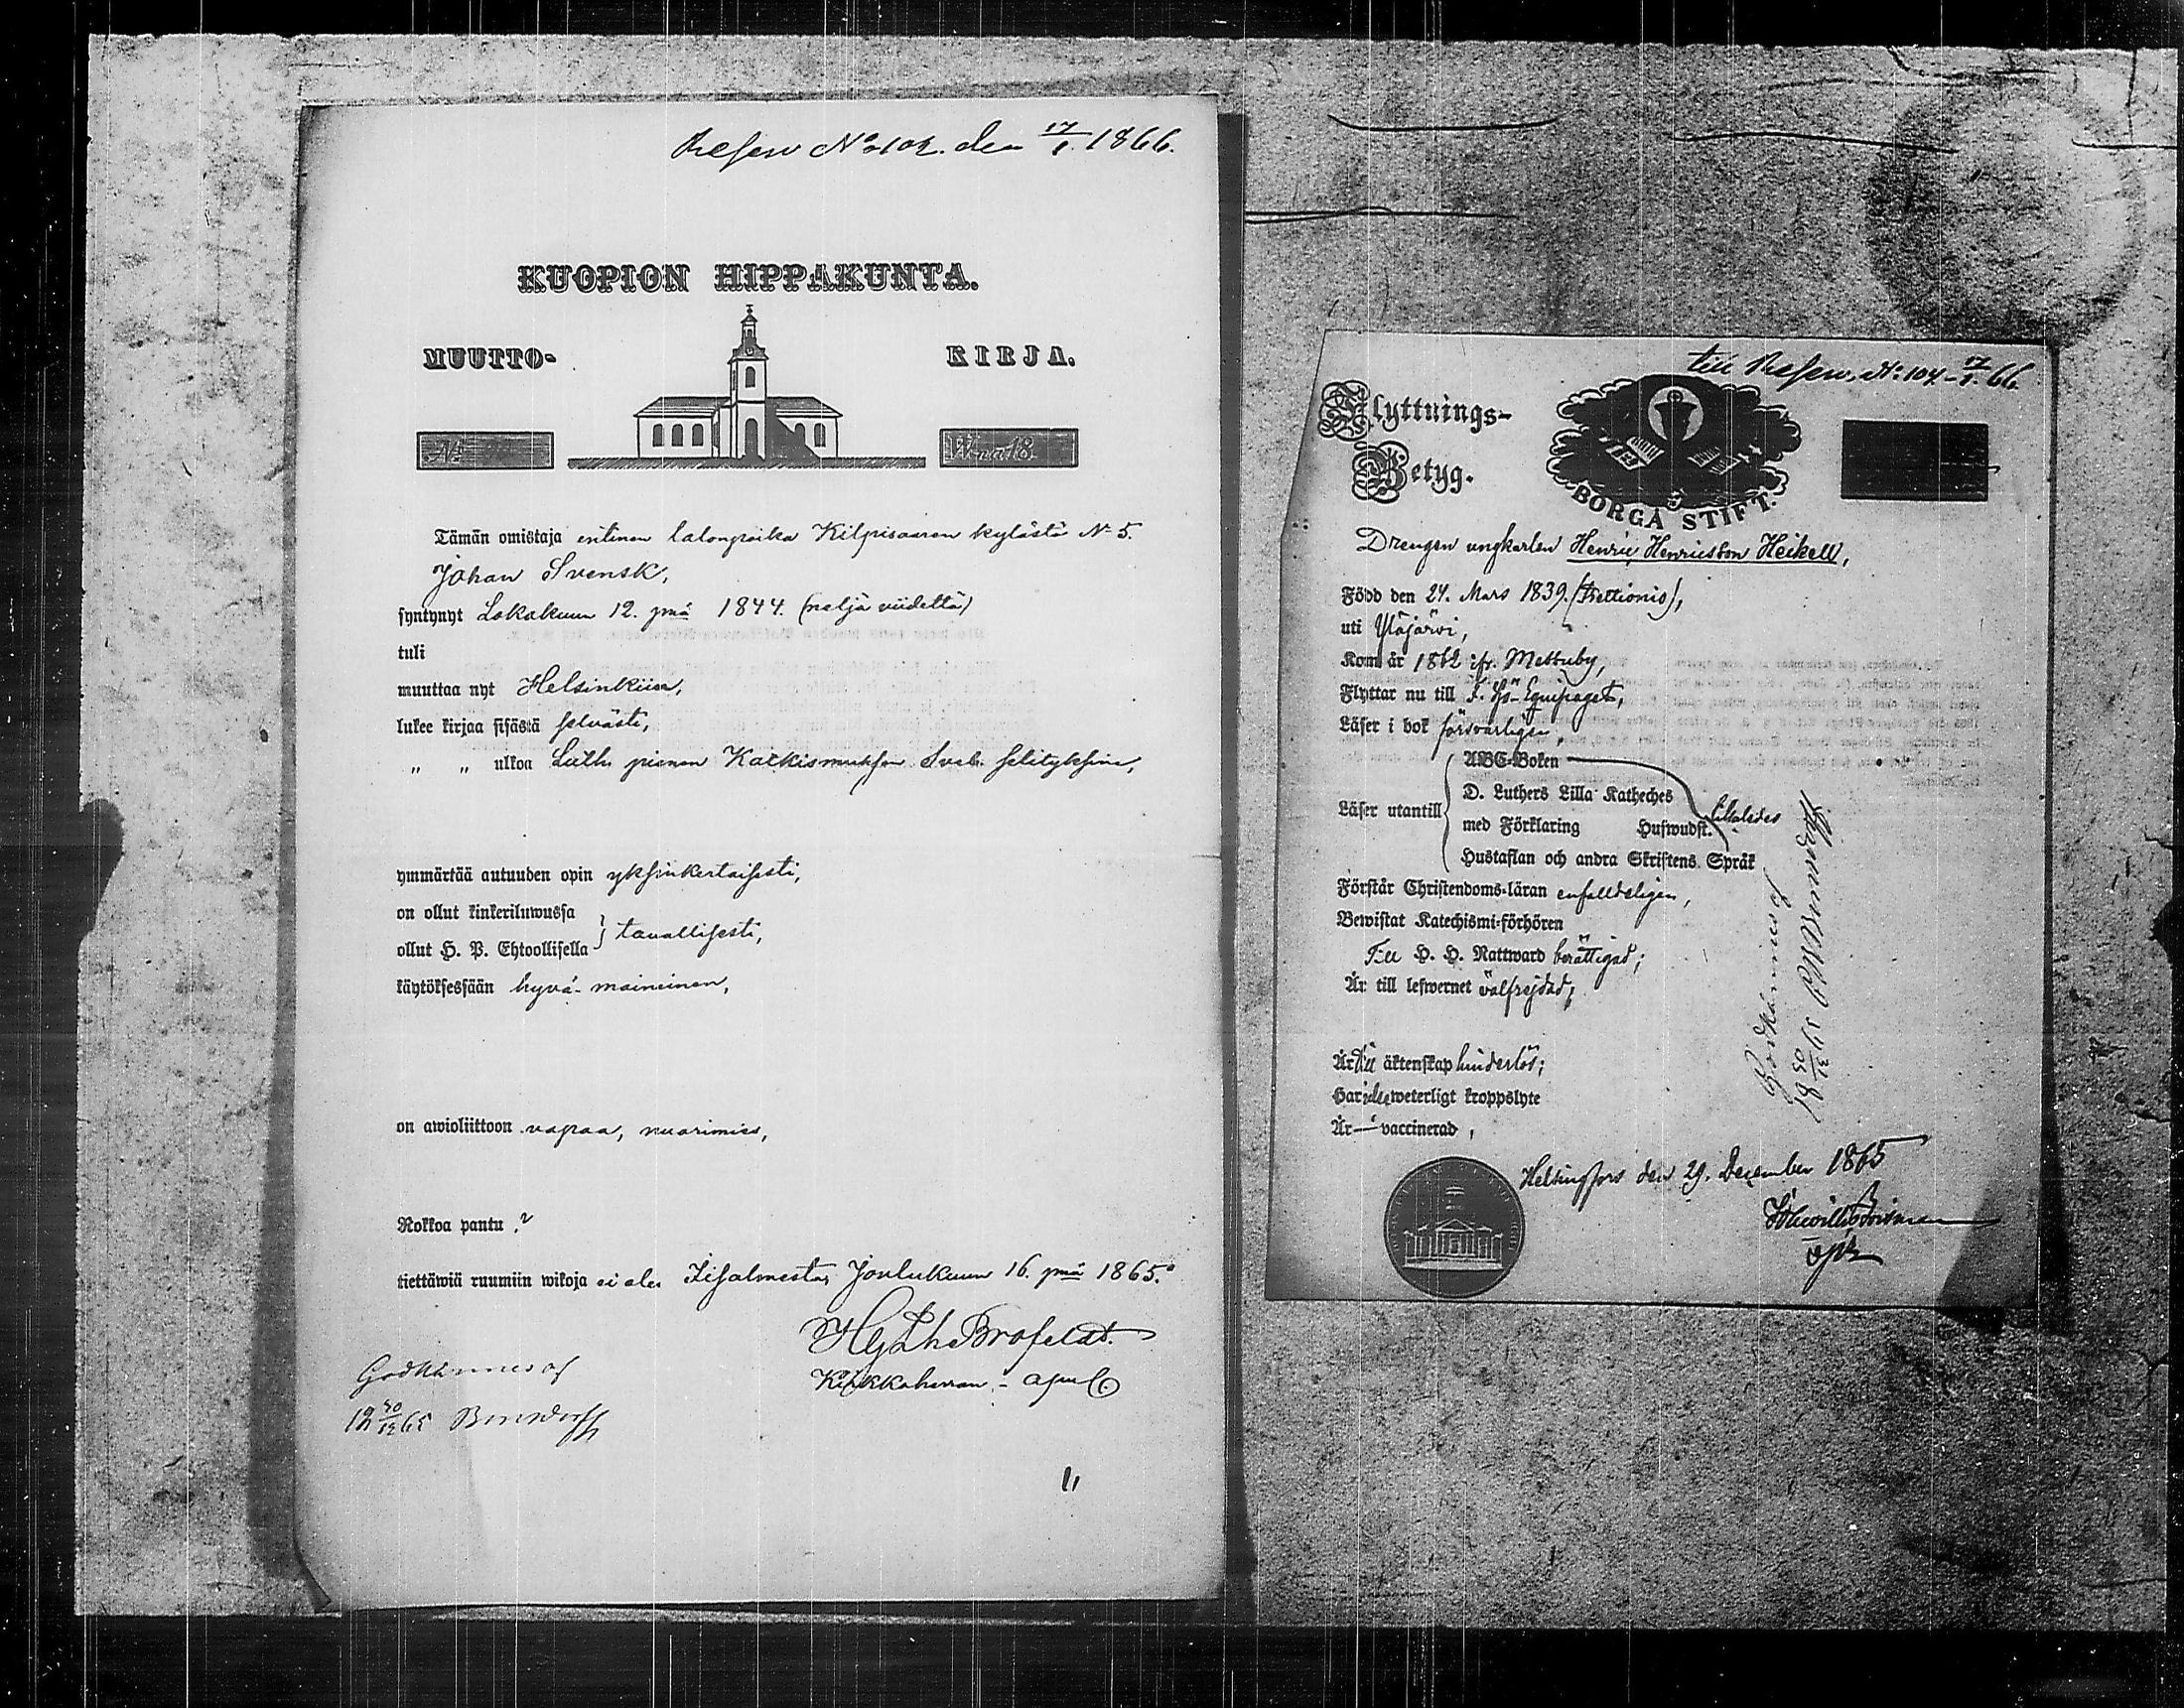 Refererv No 102. den 17/1. 1866.
KUOPION HIPPAKUNTA.
MUUTTO- KIRJA.
No W.na 18
Tämän omistaja entinen talonpoika Kilpisaaren kylästä No 5.
Johan Svensk,
syntynyt Lokakuun 12. pnä 1844. (neljä viidettä)
tuli
muuttaa nyt Helsinkiin,
lukee kirjaa sisässä selvästi,
" " ulkoa Luth. pienen Katkismuksen Sveb. selityksine,
ymmärtää autuuden opin yksinkertaisesti,
on ollut kinkeriluwussa
ollut H. P. Ehtoollisella } tavallisesti,
käytöksessään hyvä-maineinen,
on awioliittoon vapaa, nuorimies,
Rokkoa pantu ?
tiettäwiä ruumiin wikoja ei ole. Iisalmesta, Joulukuun 16. pnä 1865.
Hj Th Brofeldt.
Kirkkoherran - apul.
Godkännes af
18 30/12 65 Bonsdorff
11
till Reserv. No 104 - 17/1. 66.
Flyttnings-
Betyg.
BORGÅ STIFT.
Drengen ungkarlen Henric Henricsson Heikell,
Född den 24. Mars 1839. (trettionio),
uti Ylöjärvi,
Kom år 1862 ifr. Mettuby,
Flyttar nu till F. Sjö-Equipaget,
Läser i bok försvarligen,
Läser utantill { ABC-Boken
D. Luthers Lilla Katheches
med Förklaring Hufwudst. likaledes
Hustaflan och andra Skriftens Språk
Förstår Christendoms-läran enfalldeligen,
Bewistat Katechismi-förhören
Till H. H. Nattward berättigad;
Är till lefwernet välfrejdad,
Är till äktenskap hinderlös;
Har icke weterligt kroppslyte
Är — vaccinerad,
Godkännes af
Helsingfors den 29. December 1865